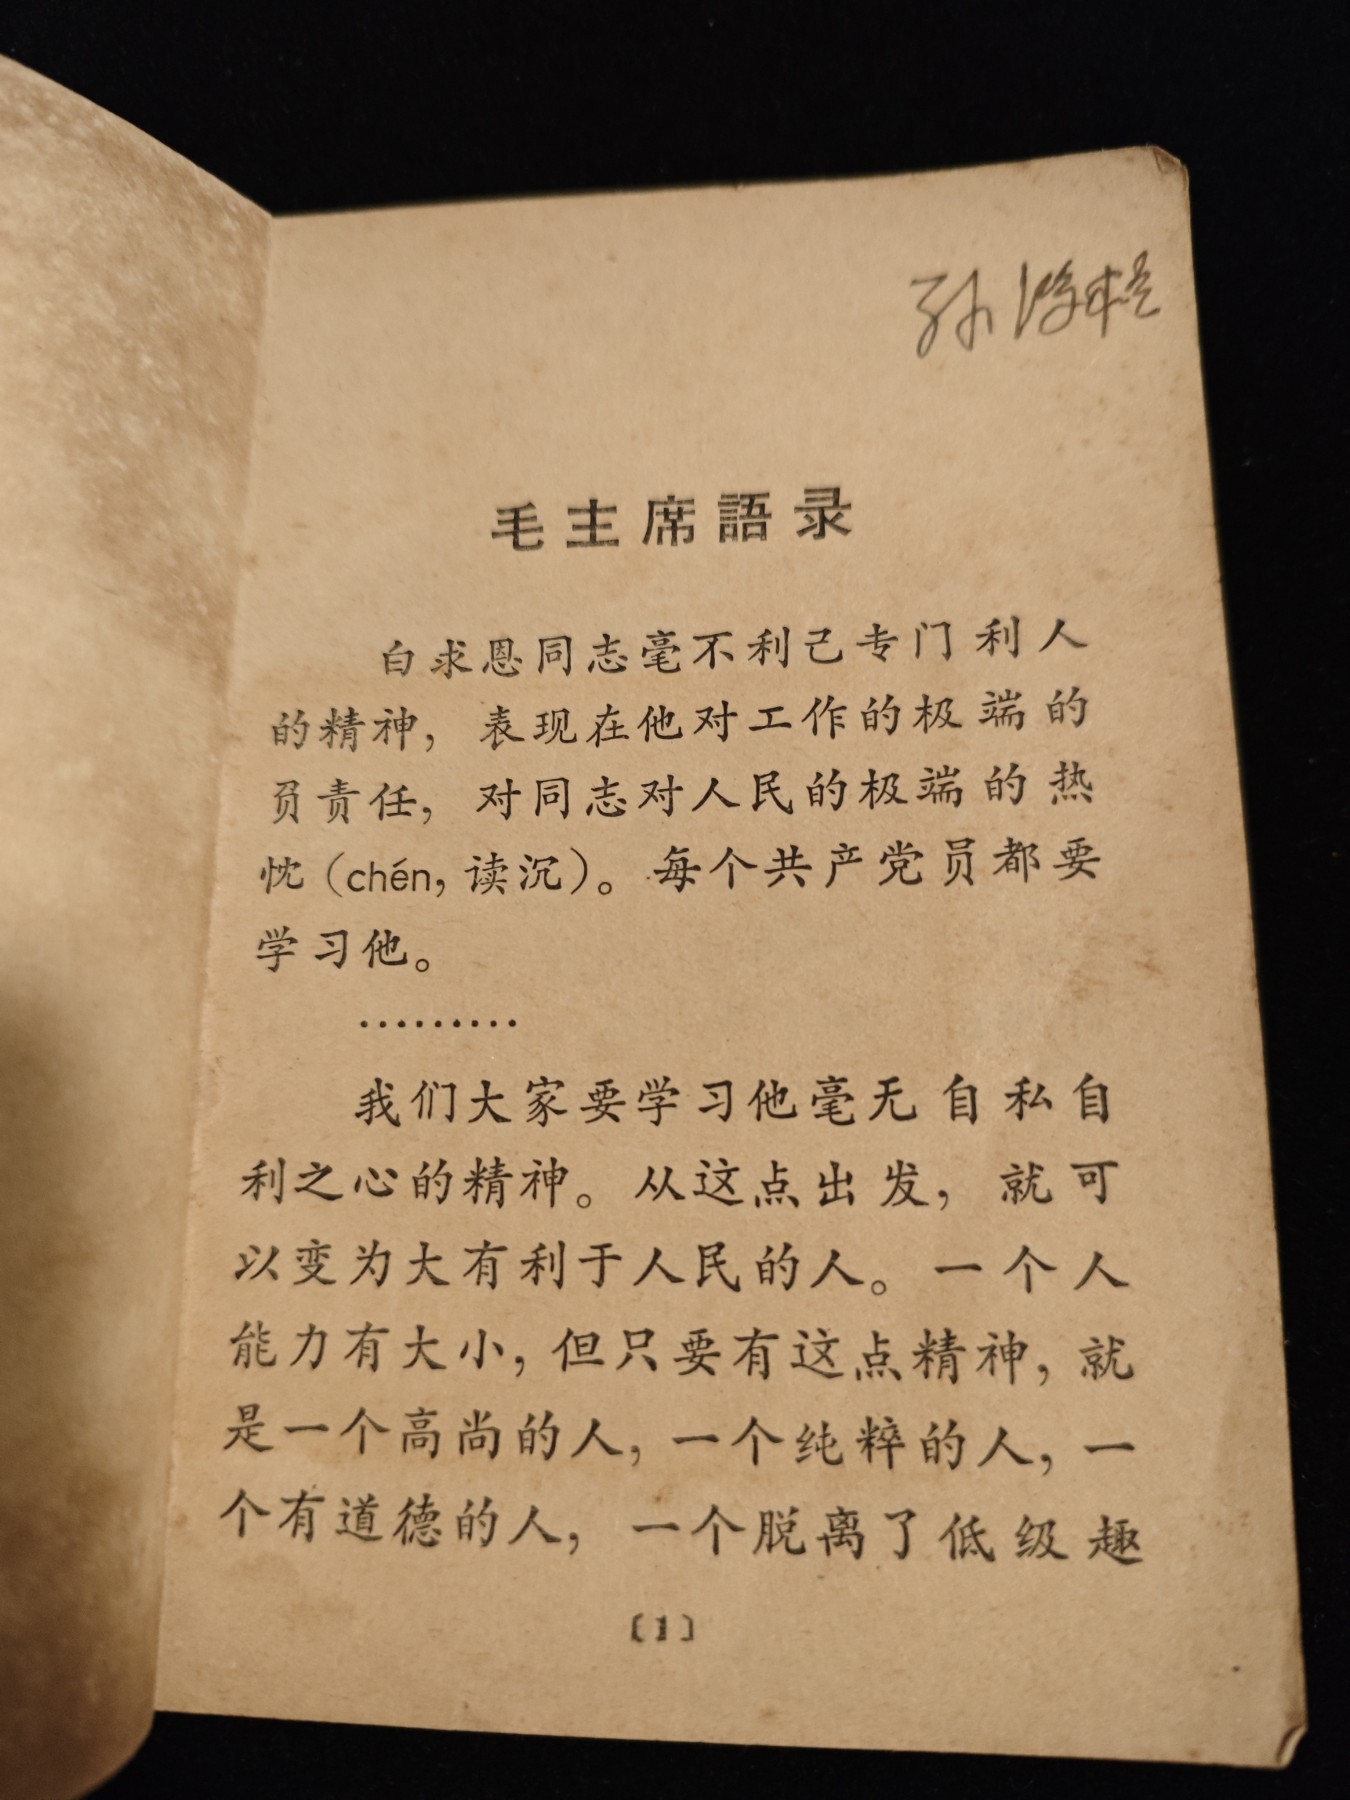 孙
毛主席語录
白求恩同志毫不利己专门利人
的精神，表现在他对工作的极端的
负责任，对同志对人民的极端的热
忱（chén，读沉）。每个共产党员都要
学习他。
………
我们大家要学习他毫无自私自
利之心的精神。从这点出发，就可
以变为大有利于人民的人。一个人
能力有大小，但只要有这点精神，就
是一个高尚的人，一个纯粹的人，一
个有道德的人，一个脱离了低级趣
〔1〕